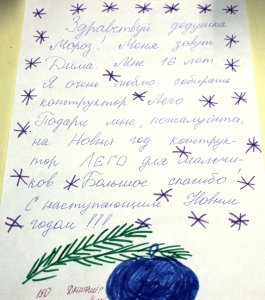 Здравствуй дедушка
Мороз! Меня зовут
Дима. Мне 16 лет
Я очень люблю собирать
конструктор Лего
Подари мне, пожалуйста,
на Новый год конструк-
тор ЛЕГО для мальчи-
ков. Большое спасибо!
С наступающим Новым
годом!!!